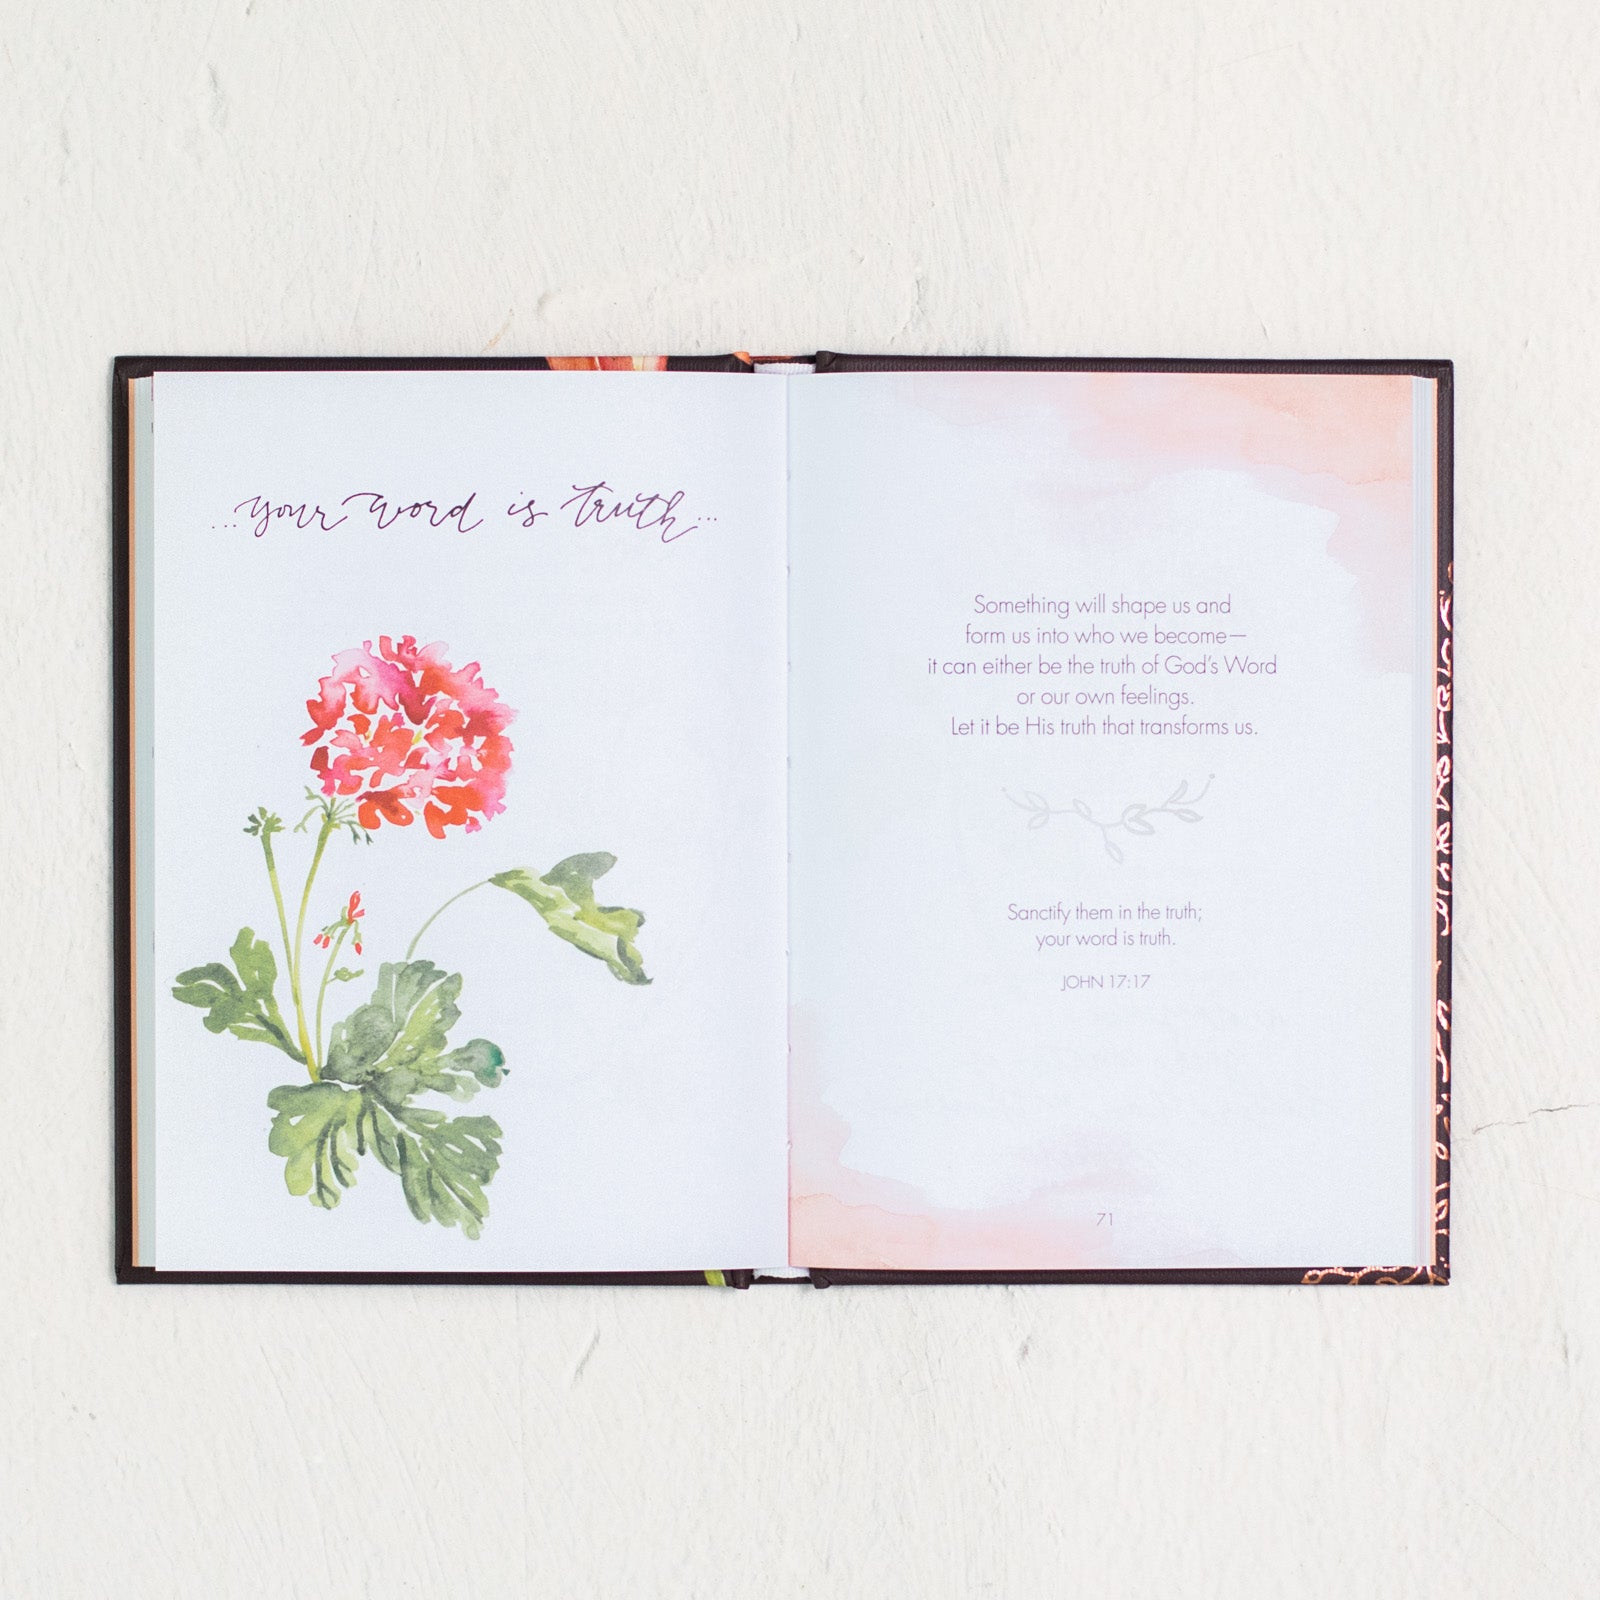 ...your word is truth...
Something will shape us and
form us into who we become—
it can either be the truth of God's Word
or our own feelings.
Let it be His truth that transforms us.
Sanctify them in the truth;
your word is truth.
JOHN 17:17
71